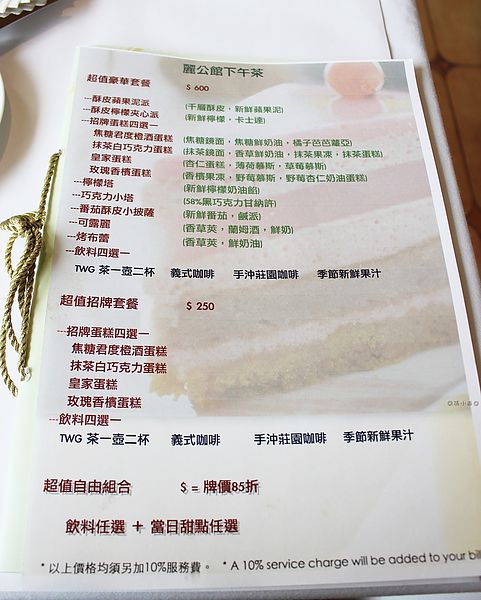 麗公館下午茶
超值豪華套餐 $ 600
---酥皮蘋果泥派 (千層酥皮，新鮮蘋果泥)
---酥皮檸檬夾心派 (新鮮檸檬，卡士達)
---招牌蛋糕四選一
焦糖君度橙酒蛋糕 (焦糖鏡面，焦糖鮮奶油，橘子芭芭蘿亞)
抹茶白巧克力蛋糕 (抹茶鏡面，香草鮮奶油，抹茶果凍，抹茶蛋糕)
皇家蛋糕 (杏仁蛋糕，薄荷慕斯，草莓慕斯)
玫瑰香檳蛋糕 (香檳果凍，野莓慕斯，野莓杏仁奶油蛋糕)
---檸檬塔 (新鮮檸檬奶油餡)
---巧克力小塔 (58%黑巧克力甘納許)
---番茄酥皮小披薩 (新鮮番茄，鹹派)
---可露麗 (香草莢，蘭姆酒，鮮奶)
---烤布蕾 (香草莢，鮮奶油)
---飲料四選一
TWG 茶一壺二杯 義式咖啡 手沖莊園咖啡 季節新鮮果汁
超值招牌套餐 $ 250
---招牌蛋糕四選一
焦糖君度橙酒蛋糕
抹茶白巧克力蛋糕
皇家蛋糕
玫瑰香檳蛋糕
---飲料四選一
TWG 茶一壺二杯 義式咖啡 手沖莊園咖啡 季節新鮮果汁
超值自由組合 $ = 牌價85折
飲料任選 + 當日甜點任選
* 以上價格均須另加10%服務費。 * A 10% service charge will be added to your bill